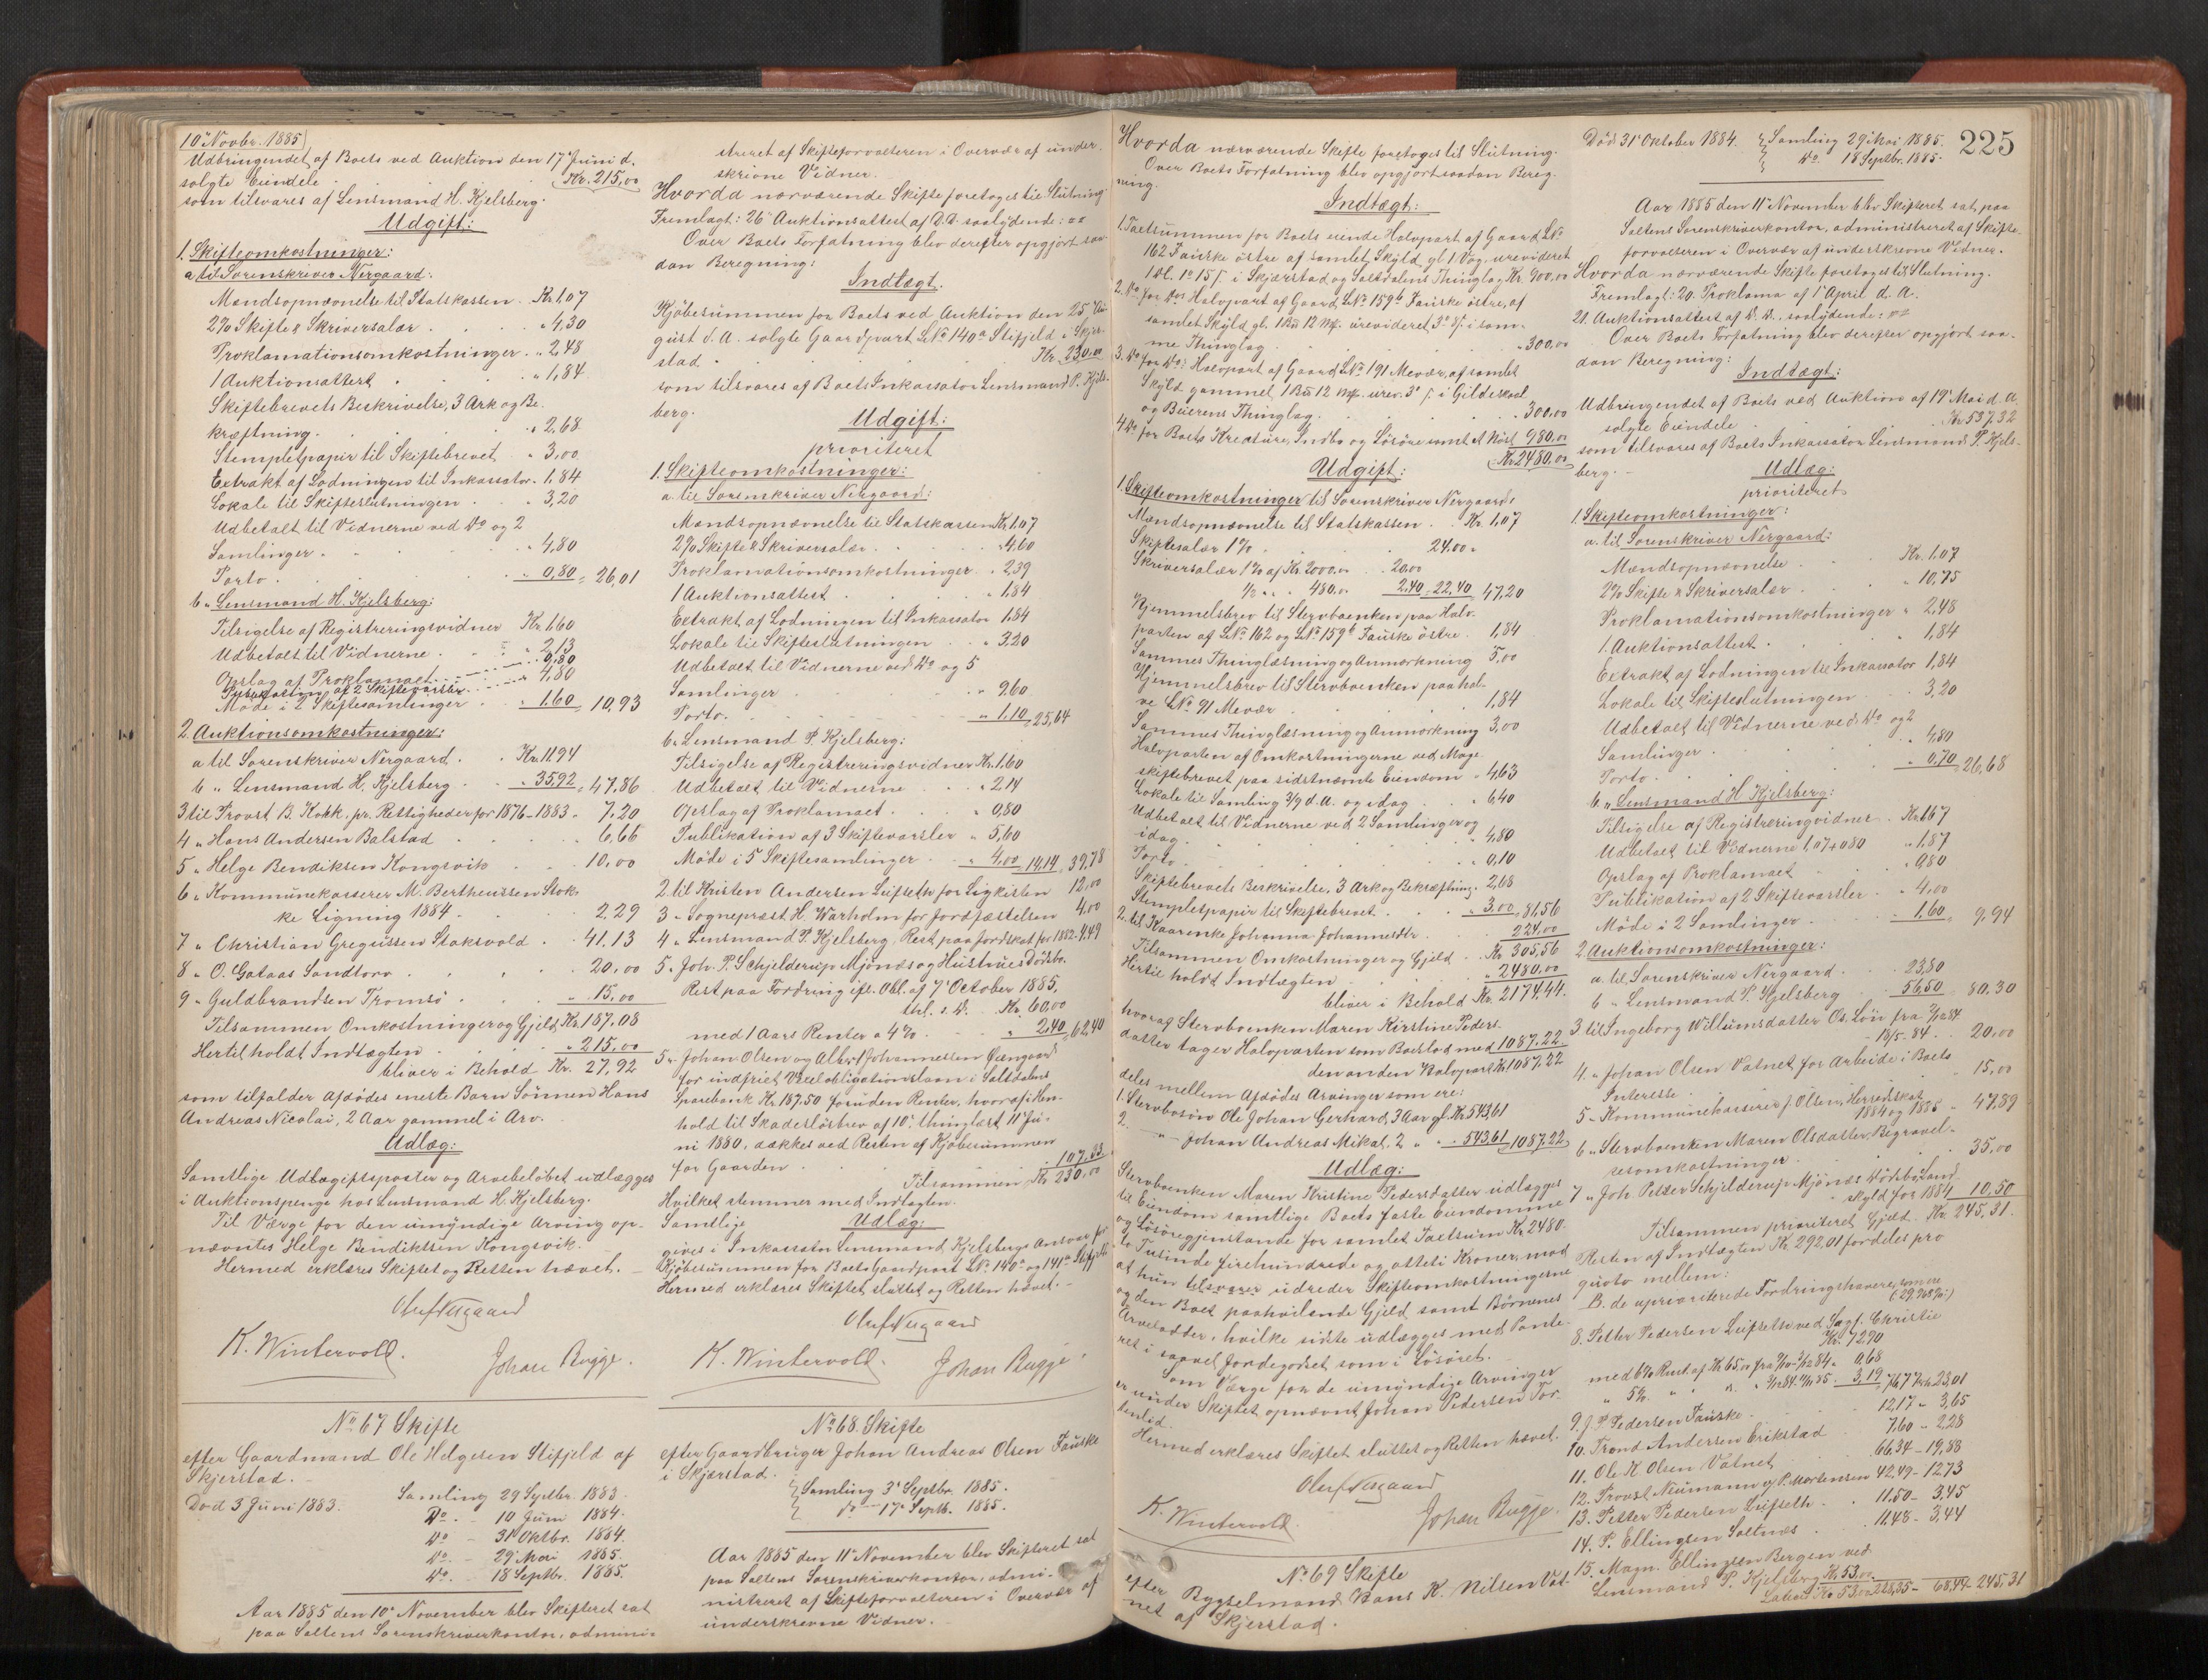 10' Novbr. 1885
Udbringendet af Boets ved Auktion den 17' Juni d.
solgte Eiendele Kr. 215,00
som tilsvares af Lensmand H. Kjelsberg.
Udgift:
1. Skifteomkostninger:
a til Sorenskriver Nergaard:
Mandsopnævnelse til Statskassen. Kr. 1.07
2% Skifte & Skriversalær . . " 4,30
Proklamationsomkostninger. " 2,48
1 Auktionsattest . . " 1,84
Skiftebrevets Beskrivelse, 3 Ark og Be-
kræftning. . . " 2,68
Stempletpapir til Skiftebrevet " 3,00
Extrakt af Lodningen til Inkassator. 1,84
Lokale til Skifteslutningen . " 3,20
Udbetalt til Vidnerne ved Do og 2
Samlinger. . . " 4,80
Porto . . " 0,80 = 26,01
b " Lensmand H. Kjelsberg:
Tilsigelse af Registreringsvidner Kr. 1.60
Udbetalt til Vidnerne . . " 2,13
Opslag af Proklamaet . . 0,80
Publikation af 2 Skiftevarsler . . " 4,80
Møde i 2 Skiftesamlinger . " 1.60 = 10,93
2. Auktionsomkostninger:
a til Sorenskriver Nergaard . Kr. 11.94
b " Lensmand H. Kjelsberg . " 35,92 = 47,86
3 til Provst B. Kokk, pr. Rettigheder for 1876-1883 " 7,20
4 " Hans Andersen Balstad . . " 6,66
5 " Helge Bendiksen Kongsvik . . 10,00
6 " Kommunekasserer M. Bertheussen Stok-
ke Ligning 1884 . . 2,29
7 " Christian Gregussen Stoksvold . . 41.13
8 " O. Gataas Sandtorv . . 20,00
9 " Guldbrandsen Tromsö . . " 15,00
Tilsammen Omkostninger og Gjeld Kr. 187,08
Hertil holdt Indtægten . . " 215,00
bliver i Behold Kr. 27,92
som tilfalder Afdødes eneste Barn Sönnen Hans
Andreas Nicolai, 2 Aar gammel i Arv.
Udlæg:
Samtlige Udtagiftsposter og Arvebeløbet udlægges
i Auktionspenge hos Lensmand H. Kjelsberg.
Til Værge for den umyndige Arving op-
nævntes Helge Bendiktsen Kongsvik.
Hermed erklæres Skiftet og Retten hævet. -
Oluf Nergaard
K. Wintervold. Johan Bugge.
No 67 Skifte
efter Gaardmand Ole Helgesen Stifjeld af
Skjerstad. -
Død 3 Juni 1883. Samling 29 Septbr. 1883.
Do. - 10 Juni 1884.
Do - 31' Oktbr. 1884.
Do. - 29' Mai 1885.
Do. - 18 Septbr. 1885.
Aar 1885 den 10' November blev Skifteret sat
paa Saltens Sorenskriverkontor, admini-
streret af Skifteforvalteren i Overvær af under-
skrevne Vidner.
Hvorda nærværende Skifte foretoges til Slutning.
Fremlagt: 26' Auktionsattest af D.D. saalydende: ==
Over Boets Forfatning blev derefter opgjort saa-
dan Beregning:
Indtægt.
Kjøbesummen for Boets ved Auktion den 25' Au-
gust d. A. solgte Gaardpart LNo 140a Stifjeld i Skjer-
stad . . Kr. 230,00
som tilsvares af Boets Inkassator Lensmand P. Kjels-
berg.
Udgift:
prioriteret
1. Skifteomkostninger:
a. til Sorenskriver Nergaard:
Mandsopnævnelse til Statskassen Kr. 1.07
2% Skifte & Skriversalær. . . " 4,60
Proklamationsomkostninger " 2,39
1 Auktionsattest . . " 1,84
Extrakt af Lodningen til Inkassator 1.84
Lokale til Skifteslutningen . " 3.20
Udbetalt til Vidnerne ved Do og 5
Samlinger . . " 9,60
Porto. . . " 1,10 = 25,64
b " Lensmand P. Kjelsberg:
Tilsigelse af Registreringsvidner Kr. 1.60
Udbetalt til Vidnerne . . " 2,14
Opslag af Proklamaet . " 0,80
Publikation af 3 Skiftevarsler " 5,60
Møde i 5 Skiftesamlinger . . " 4,00 14,14 = 39,78
2 til Kristen Andersen Leifseth for Ligkisten 12,00
3 " Sogneprest H. Warholm for Jordfæstelsen 4,00
4 " Lensmand P. Kjelsberg, Rest paa Jordskat for 1882. 4,49
5. Joh. P. Schjelderup Mjönes og Hustrues Dødsbo.
Rest paa Fordring ifl. Obl. af 7' October 1885.
thl. s. D. Kr. 60,00
med 1 Aars Renter a 4% . " 2,40 = 62,40
5 " Johan Olsen og Albert Johannessen Øiengaard
for indfriet Vexelobligationslaan i Saltdalens
Sparebank Kr. 187.50 foruden Renter, hvoraf i Hen-
hold til Skadesløsbrev af 10', thinglæst 11' Ju-
ni 1880, dækkes ved Resten af Kjøbesummen
for Gaarden . . 107,33
Tilsammen Kr. 230,00
Hvilket stemmer med Indtægten.
Udlæg:
Samtlige
gives i Inkassator Lensmand Kjelsbergs Ansvar for
Kjøbesummen for Boets Gaardpart LNo 140a og 141a Stifjeld
Hermed erklæres Skiftet sluttet og Retten hævet. -
Oluf Nergaard
K. Wintervold. Johan Bugge
No 68. Skifte
efter Gaardbruger Johan Andreas Olsen Fauske
i Skjærstad.
Samling 3' Septbr. 1885.
do - 17' Septb. 1885.
Aar 1885 den 11' November blev Skifteret sat
paa Saltens Sorenskriverkontor, admi-
nistreret af Skifteforvalteren i Overvær af
underskrevne Vidner. -
Hvorda nærværende Skifte foretoges til Slutning.
Over Boets Forfatning blev opgjort saadan Bereg-
ning.
Indtægt:
1. Taxtsummen for Boets eiende Halvpart af Gaard LNo
162 Fauske østre af samlet Skyld gl 1 Vog, urevideret
1 Dl. 1o 15 s. i Skjærstad og Saltdalens Thinglag Kr. 900,00
2. Do for Dos Halvpart af Gaard LNo 159b Fauske østre, af
samlet Skyld gl. 1 Bu 12 Mf. urevideret 3o s. i sam-
me Thinglag . . " 300,00
3. Do for Do: Halvpart af Gaard LNo 191 Mevær, af samlet
Skyld gammel, 1 Bu 12 Mf. urev. 3' s. i Gildeskaal
og Beierens Thinglag. . . " 300,00
4 Do for Boets Kreature, Indbo og Løsøre samt et Nöst 980,00
Kr. 2480,00
Udgift:
1. Skifteomkostninger til Sorenskriver Nergaard:
Mandsopnævnelse til Statskassen . . Kr. 1,07
Skiftesalær 1% . . 24.00 =
Skriversalær 1% af Kr. 2000,00 . . 20,00
1/2 " " 480.00 2,40 = 22,40 47,20
Hjemmelsbrev til Stervboenken paa Halv-
parten af LNo 162 og LNo 159b Fauske østre . 1,84
Sammes Thinglæsning og Anmærkning 5,00
Hjemmelsbrev til Stervboenken paa hal-
ve LNo 91 Mevær . . 1,84
Sammes Thinglæsning og Anmærkning 3,00
Halvparten af Omkostningerne ved Mage-
skiftebrevet paa sidstnævnte Eiendom " 4,63
Lokale til Samling 3/9 d. A. og idag . . " 6,40
Udbetalt til Vidnerne ved 2 Samlinger og
idag . . " 4,80
Porto . . " 0,10
Skiftebrevets Beskrivelse, 3 Ark og Bekræftning. 2,68
Stempletpapir til Skiftebrevet . . " 3.00 = 81,56
2. til Kaarenke Johanna Johannesdtr. . 224,00
Tilsammen Omkostninger og Gjeld . . Kr. 305,56
Hertil holdt Indtægten . . " 2480,00
bliver i Behold Kr. 2174,44.
hvoraf Stervboenken Maren Kirstine Peders-
datter tager Halvparten som Boeslod med 1087.22
den anden Halvpart Kr. 1087.22
deles mellem Afdødes Arvinger som ere:
1. Stervbosøn Ole Johan Gerhard, 3 Aar gl. Kr. 543,61
2. " - Johan Andreas Mikal, 2 " " . 543,61 1087,22
Udlæg:
Stervboenken Maren Kristine Pedersdatter udlægges
til Eiendom samtlige Boets faste Eiendomme
og Løsøregjenstande for samlet Taxtsum Kr. 2480.
to Tusinde firehundrede og otteti Kroner, mod
at hun tilsvarer udreder Skifteomkostningerne
og den Boet paahvilende Gjeld samt Børnenes
Arvelodder, hvilke sidste udlægges med Pante-
ret i saavel Jordegodset som i Løsøret.
Som Værge for de umyndige Arvinger
er under Skiftet opnævnt Johan Pedersen Tor-
tenlid.
Hermed erklæres Skiftet sluttet og Retten hævet.
Oluf Nergaard
K. Wintervold. Johan Bugge.
No 69 Skifte
efter Bygselmand Hans K. Nilsen Vat-
net af Skjerstad.
225
Død 31' Oktober 1884. Samling 29' Mai 1885.
Do 18 Septbr. 1885.
Aar 1885 den 11' November blev Skifteret sat paa
Saltens Sorenskriverkontor, administreret af Skifte-
forvalteren i Overvær af underskrevne Vidner.
Hvorda nærværende Skifte foretoges til Slutning.
Fremlagt: 20. Proklama af 1' April d. A.
21. Auktionsattest af D. D., saalydende: ==
Over Boets Forfatning blev derefter opgjort saa-
dan Beregning:
Indtægt:
Udbringendet af Boets ved Auktion af 19' Mai d. A.
solgte Eiendele . . Kr. 537,32
som tilsvares af Boets Inkassator Lensmand P. Kjels-
berg. -
Udlæg:
prioriteret
1. Skifteomkostninger:
a. til Sorenskriver Nergaard:
Mandsopnævnelse . . Kr. 1.07
2% Skifte & Skriversalær . . " 10,75
Proklamationsomkostninger " 2,48
1. Auktionsattest . . " 1,84
Extrakt af Lodningen til Inkassator 1,84
Lokale til Skifteslutningen . . 3,20
Udbetalt til Vidnerne ved Do og 2
Samlinger . . " 4,80
Porto . . " 0,70 = 26,68
b " Lensmand H. Kjelsberg:
Tilsigelse af Registreringvidner . Kr. 1.67
Udbetalt til Vidnerne 1,07+0,80 " 1,87
Opslag af Proklamaet . " 0,80
Publikation af 2 Skiftevarsler . " 4,00
Møde i 2 Samlinger . . " 1,60 = 9,94
2. Auktionsomkostninger:
a. til Sorenskriver Nergaard . . 23,80
b " Lensmand P. Kjelsberg . 56,50 = 80,30
3 til Ingeborg Willumsdatter Os. Løn fra
- 18/5. 84 . . 20.00
4. " Johan Olsen Vatnet, for Arbeide i Boets
Interesse . . " 15,00
5 - Kommunekasserer J. Olsen, Herredskat
1884 og 1885 " 47,89
6 " Stervboenken Maren Olsdatter, Begravel-
sesomkostninger . . 35,00
7 " Joh. Petter Schjelderup Mjönes Dödsbo Land-
skyld for 1884 10,50
Tilsammen prioriteret Gjeld. Kr. 245,31.
Resten af Indtægten Kr. 292,01 fordeles pro
quoto mellem:
B. de uprioriterede Fordringshavere, som ere
8. Petter Pedersen Leifseth ved Sagf. Christie
Kr. 72,90
med 6% Rent. af Kr. 65,00 fra 84 " 0,68
" 5% " " " 85. 3,19 76,77 Kr. 23,01
9. J. P. Pedersen Fauske . . 12,17 " 3,65
10. Trond Andersen Erikstad . . 7,60 " 2,28
11. Ole K. Olsen Vatnet . . 66,34 - 19,88
12. Provst Neumann v/ P. Mortensen 42,49 - 12,73
13. Petter Pedersen Leifseth . . 11.50 - 3,45
14. P. Ellingsen Saltnæs . . 11,48 - 3,44
15. Magn. Ellingsen Bergen ved
Lensmand P. Kjelsberg Kr. 53.00
Lateris Kr. 53.00 228,35 - 68,44 - 245,31